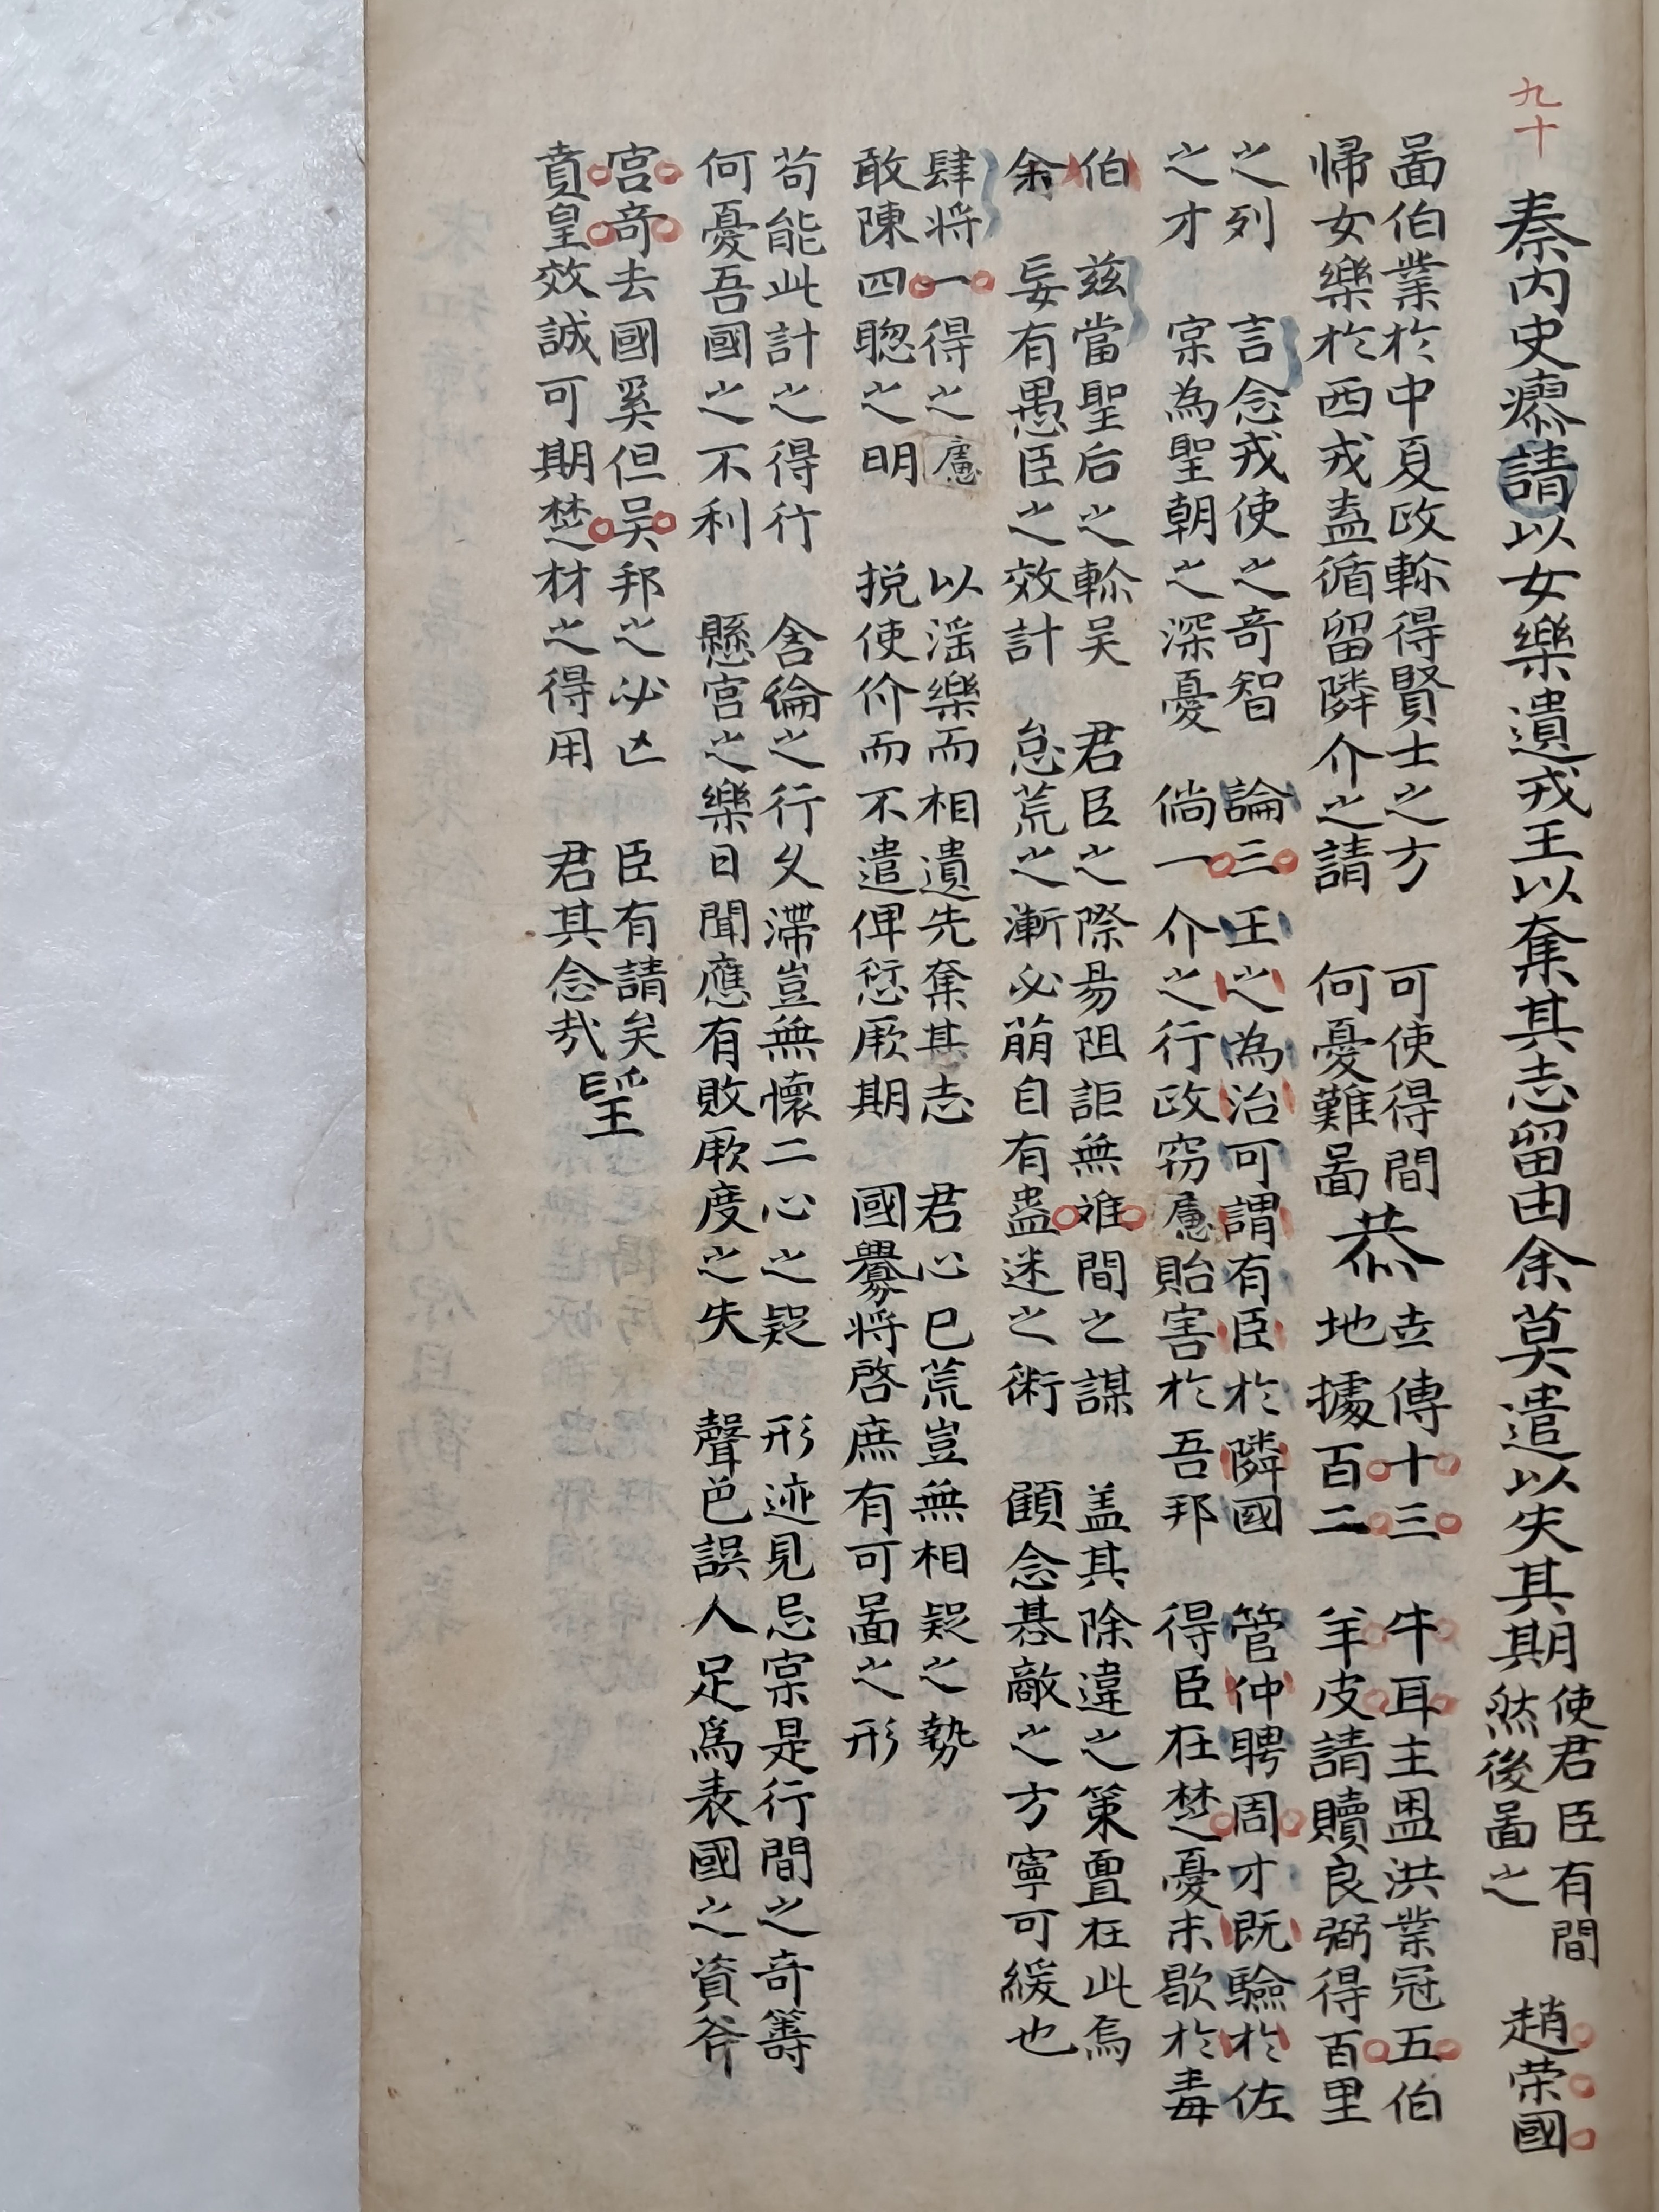 九十
秦内史廖請以女樂遺戎王以奪其志留由余莫遣以失其期使君臣有間然後啚之 趙荣國
啚伯業於中夏政軫得賢士之方 可使得間恭 傳十三 牛耳主盟洪業冠五伯
帰女樂於西戎盍循留隣介之請 何憂難啚 地據百二 羊皮請贖良弼得百里
之列 言念戎使之奇智 論三王之為治可謂有臣於隣國 管仲聘周才既驗於佐
之才 寔為聖朝之深憂 倘一介之行政窃慮貽害於吾邦 得臣在楚憂未歇於毒
伯 兹當聖后之軫吴 君臣之際昜阻詎無难間之謀 盖其除違之策亶在此焉
余 妄有愚臣之效計 怠荒之漸必萠自有蛊迷之術 顧念碁敵之方寧可緩也
肆将一得之慮 以滛樂而相遺先奪其志 君心已荒豈無相疑之勢
敢陳四聡之明 挩使价而不遣俾愆厥期 國釁将啓庶有可啚之形
苟能此計之得行 舍倫之行久滯豈無懷二心之疑 形迹見忌寔是行間之奇籌
何憂吾國之不利 懸宫之樂日聞應有敗厥度之失 聲色誤人足爲表國之資斧
宫竒去國奚但吴邦之必亡 臣有請矣
賁皇效誠可期楚材之得用 君其念㢤